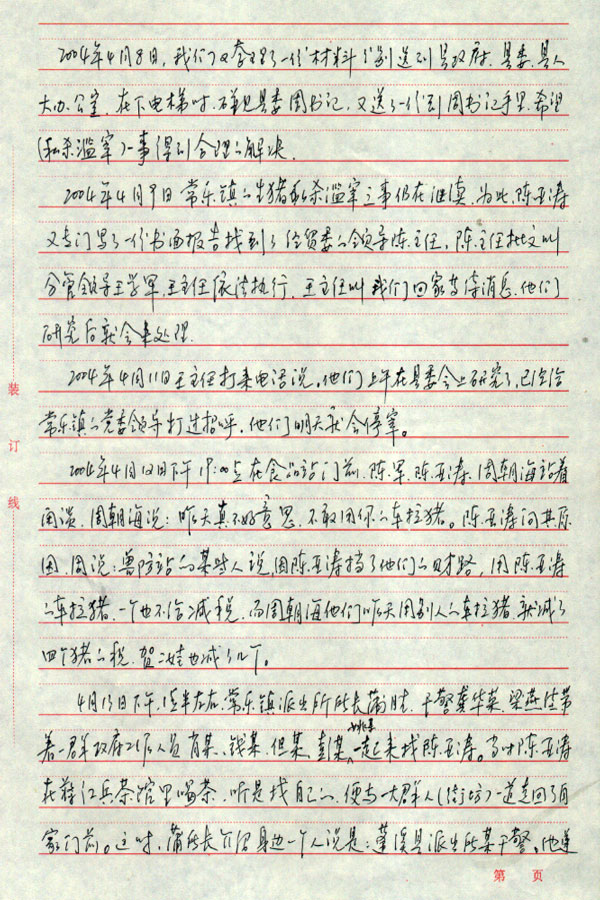 2004年4月8日，我们又整理了一份材料分别送到县政府.县委.县人
大办公室.在下电梯时.碰见县委周书记，又送了一份到周书记手里.希望
(私杀滥宰)一事得到合理的解决.
2004年4月9日常乐镇的生猪私杀滥宰之事仍在继续.为此，陈亚涛
又专门写了一份书面报告找到了经贸委的领导陈主任，陈主任批文叫
分管领导王学军，王主任依法执行，王主任叫我们回家等待消息.他们
研究后就会来处理.
2004年4月11日王主任打来电话说，他们上午在县委会上研究了，已经给
常乐镇的党委领导打过招呼，他们明天就会停宰。
2004年4月12日下午17:00点在食品站门前.陈军.陈亚涛.周朝海站着
闲谈，周朝海说：昨天真不好意思，不敢用你的车拉猪。陈亚涛问其原
因.周说：兽防站的某些人说，因陈亚涛挡了他们的财路，用陈亚涛
的车拉猪，一个也不给减税，而周朝海他们昨天用别人的车拉猪，就减了
四个猪的税，贺二娃也减了几个。
4月13日下午1点半左右.常乐镇派出所所长蒲月，干警龚华英，梁燕生带
着一群政府工作人员肖某、钱某、但某、彭某、姚某一起来找陈亚涛。当时陈亚涛
在程江兵茶馆里喝茶，听是找自己的，便与一大群人(街坊)一道走回了自
家门前。这时，蒲所长介绍身边一个人说是：蓬溪县派出所某干警，他递
装
订
线
第 页